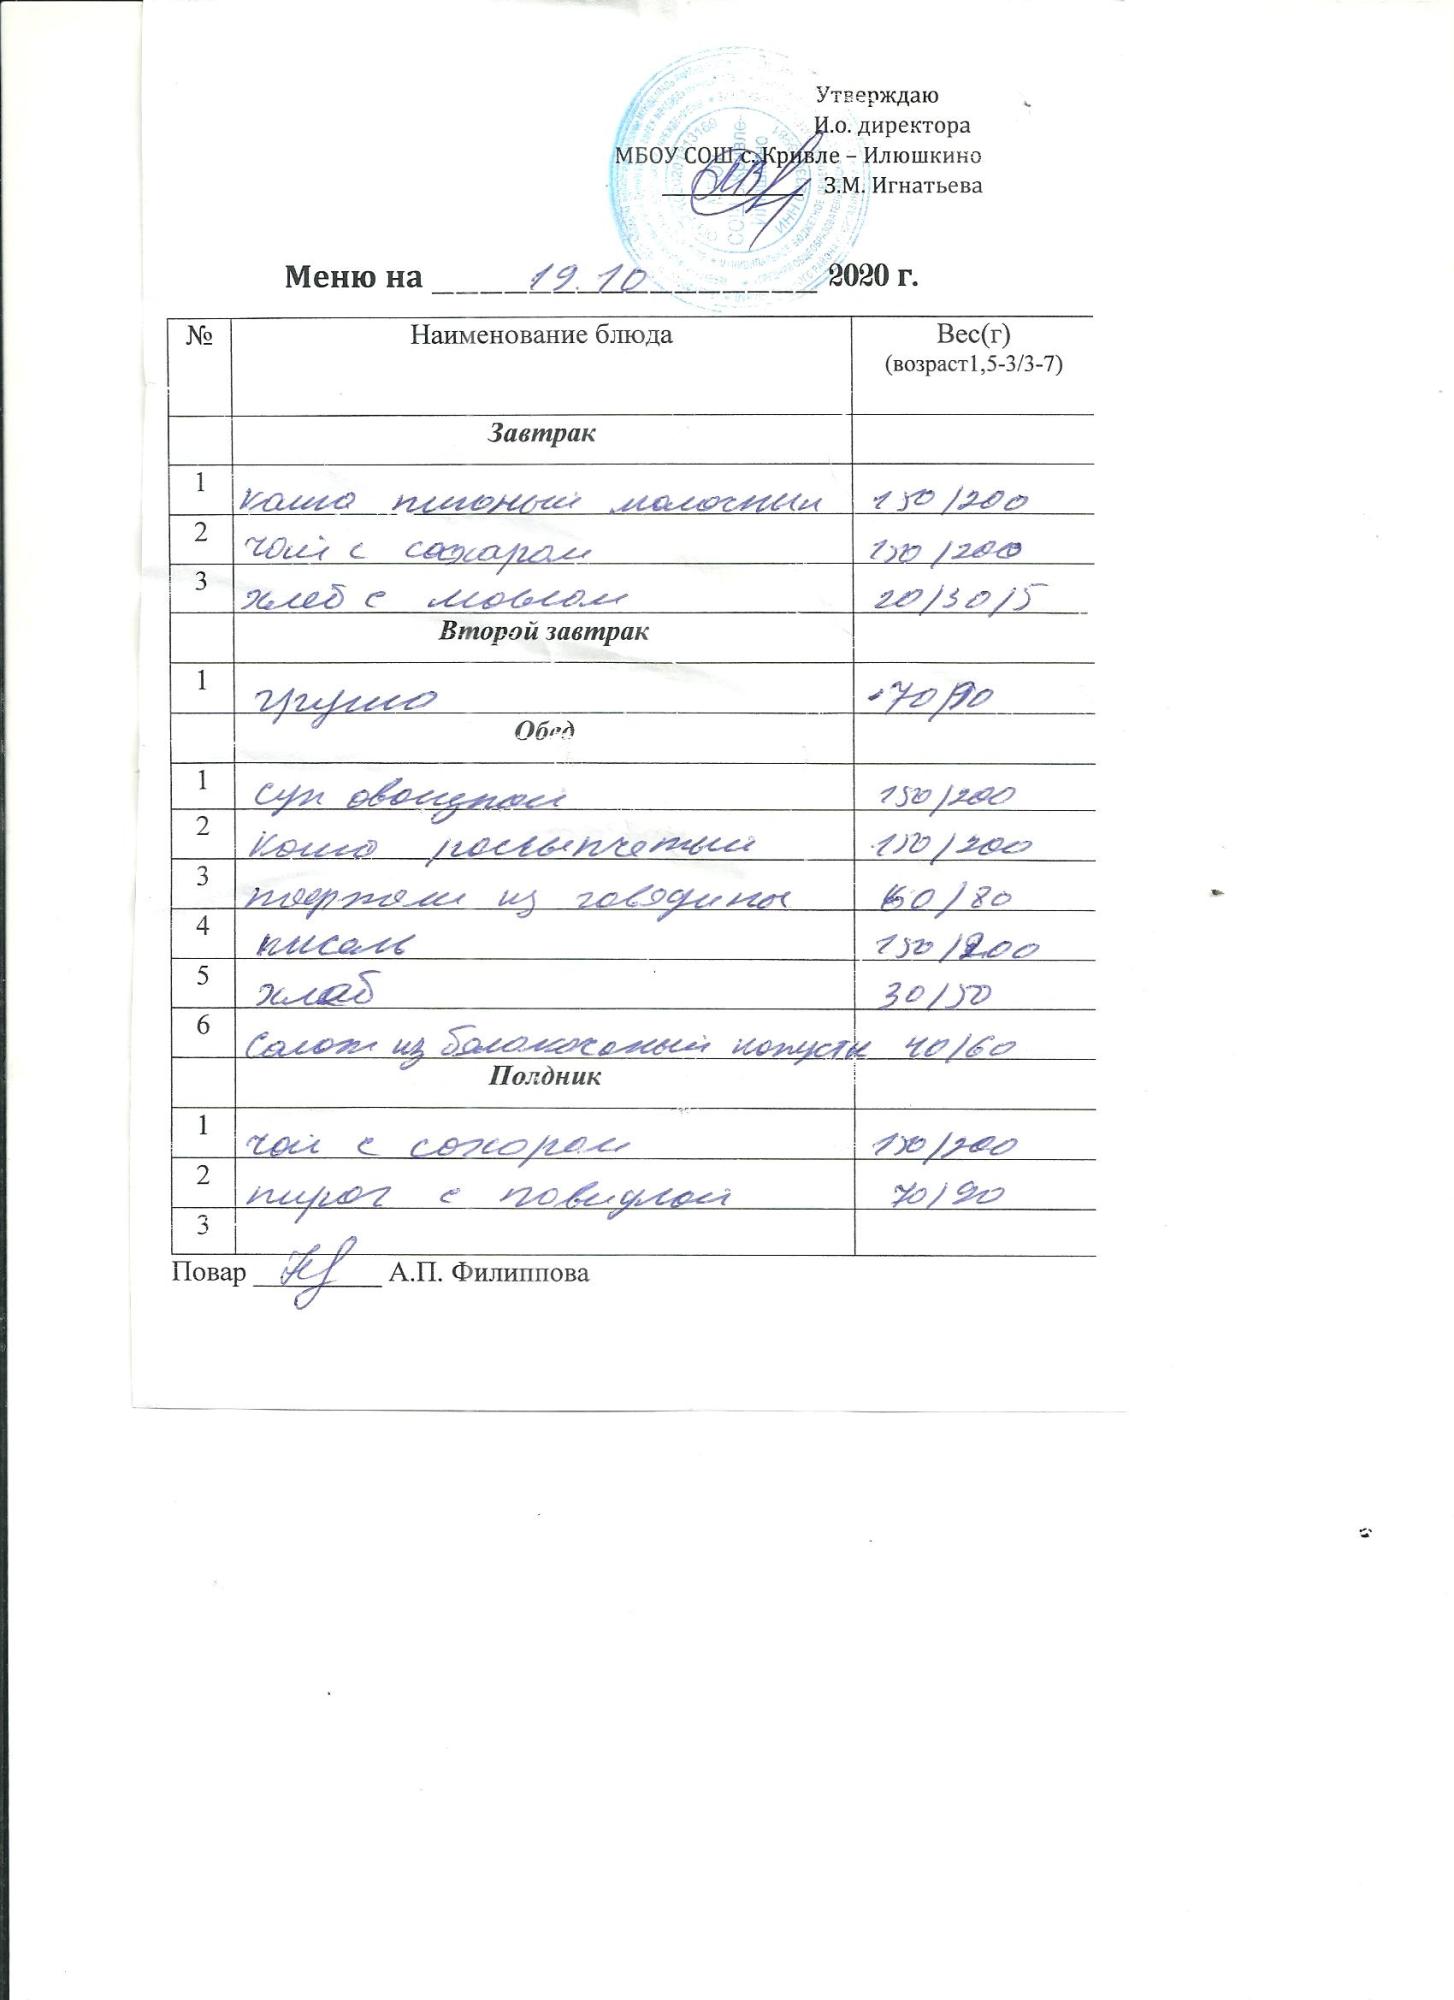 Утверждаю
И.о. директора
МБОУ СОШ с. Кривле – Илюшкино
З.М. Игнатьева
Меню на 19.10 2020 г.
№ Наименование блюда Вес(г)
(возраст1,5-3/3-7)
Завтрак
1 каша пшоный молочный 150/200
2 чай с сахаром 150/200
3 хлеб с маслом 20/30/5
Второй завтрак
1 груша 70/90
Обед
1 суп овощной 150/200
2 Каша рассыпчетый 150/200
3 из говядины 60/80
4 кисель 150/200
5 хлеб 30/50
6 Салат из капусты 40/60
Полдник
1 чай с сахаром 150/200
2 пирог с повидлой 70/90
3
Повар А.П. Филиппова